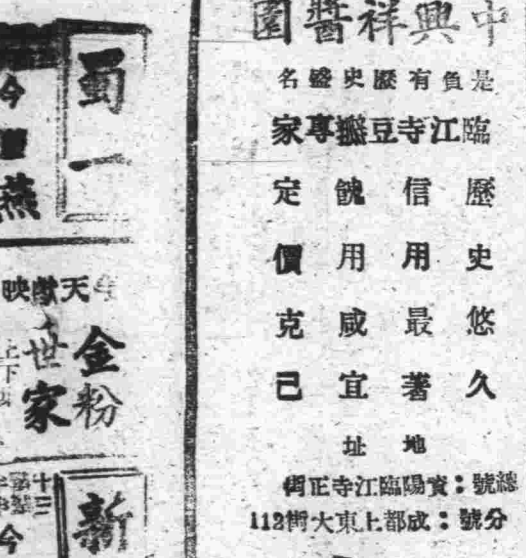 中興祥醬園
是負有歷史盛名
臨江寺豆瓣專家
歷史悠久
信用最著
餽用咸宜
定價克己
地址
總號：資陽臨江寺正街
分號：成都上東大街112
蜀一
今
燕
今天獻映
金粉
世家
新
今